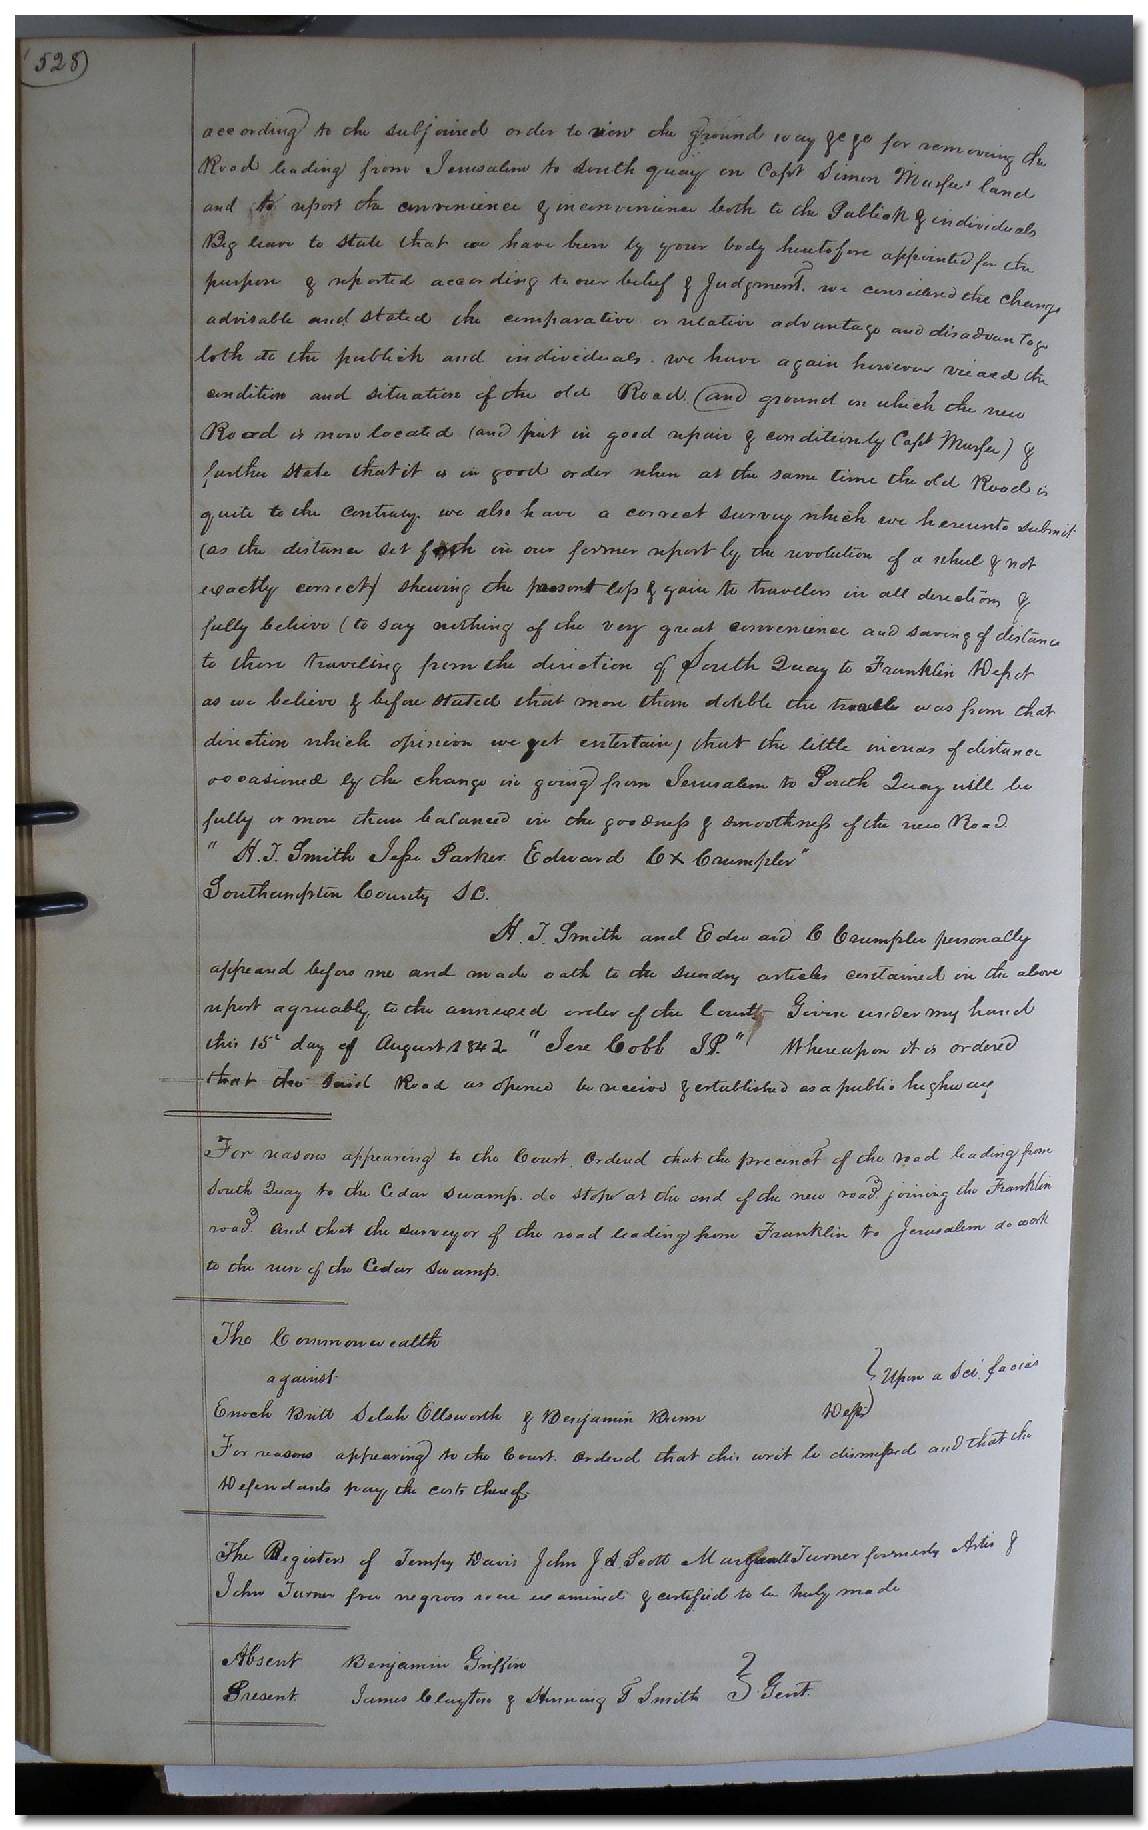 528)
according to the subjoined order to view the ground way &c &c for removing the
Road leading from Jerusalem to South quay on Capt Simon Murfees land
and to report the convenience & inconvenience both to the Publick & individuals
Beg leave to state that we have been by your body heretofore appointed for the
purpose & reported according to our belief & Judgment. we considered the change
advisable and stated the comparative or relative advantage and disadvantage
both to the publick and individuals. we have again however viewed the
condition and situation of the old Road (and ground on which the new
Road is now located (and put in good repair & condition by Capt Murfee) &
further state that it is in good order when at the same time the old Road is
quite to the contrary. we also have a correct survey which we hereunto submit
(as the distance set forth in our former report by the revolution of a wheel & not
exactly correct) shewing the present loss & gain to travellers in all directions &
fully believe (to say nothing of the very great convenience and saving of distance
to those traveling from the direction of South Quay to Franklin Depot
as we believe & before stated that more than double the travell was from that
direction which opinion we yet entertain) that the little increas of distance
occasioned by the change in going from Jerusalem to South Quay will be
fully or more than balanced in the goodness & smoothness of the new Road.
" H. T. Smith Jesse Parker Edward C X Crumpler"
Southampton County SC.
H. T. Smith and Edward C Crumpler personally
appeared before me and made oath to the sundry articles contained in the above
report agreeably to the annexed order of the Court Given under my hand
this 15t day of August 1842 "Jere Cobb JP." Whereupon it is ordered
that the said Road as opened be receive & established as a public highway
For reasons appearing to the Court. Ordered that the precinct of the road leading from
South Quay to the Cedar Swamp. do stop at the end of the new road joining the Franklin
road. And that the surveyor of the road leading from Franklin to Jerusalem do work
to the run of the Cedar Swamp.
The Commonwealth
against } Upon a Sci facias
Enoch Britt Selah Ellsworth & Benjamin Bunn Defts
For reasons appearing to the Court. Ordered that this writ be dismissed and that the
Defendants pay the costs thereof
The Registers of Tempy Davis John J. S. Scott Turner formerly Artis &
John Turner free negroes were examined & certified to be truly made
Absent Benjamin Griffin
Present James Clayton & Henning T Smith } Gent.